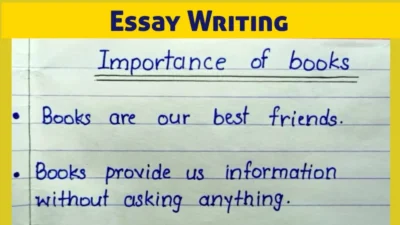 Essay Writing
Importance of books
• Books are our best friends.
• Books provide us information
without asking anything.